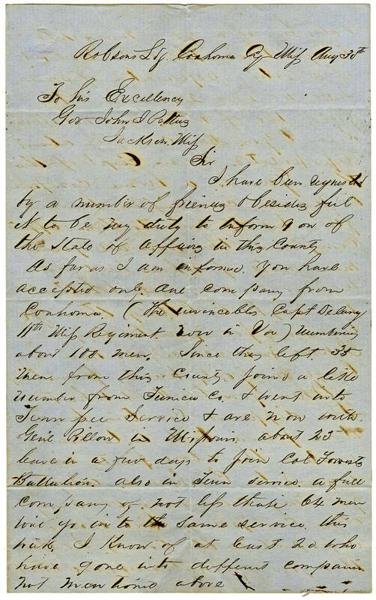 Robsons Ldg Coahoma Cy Miss Aug 30th
To his Excellency
Gov John J Pettus
Jackson Miss
Sir
I have been requested
by a number of friends & besides feel
it to be my duty to inform you of
the State of affairs in this County
As far as I am informed, You have
accepted only one company from
Coahoma (The invincibles Capt Delany
11th Miss Regiment now in Va) numbering
about 100 men. Since they left 35
men from this County joined a like
number from Tunica Co & went into
Tennessee service & are now with
Genl Pillow in Missouri about 25
leave in a few days to join Col Forrests
Battalion also in Tenn service, a full
company of not less than 64 men
will go in to the same service this
week, I know of at least 20 who
have gone into different companies
not mentioned above